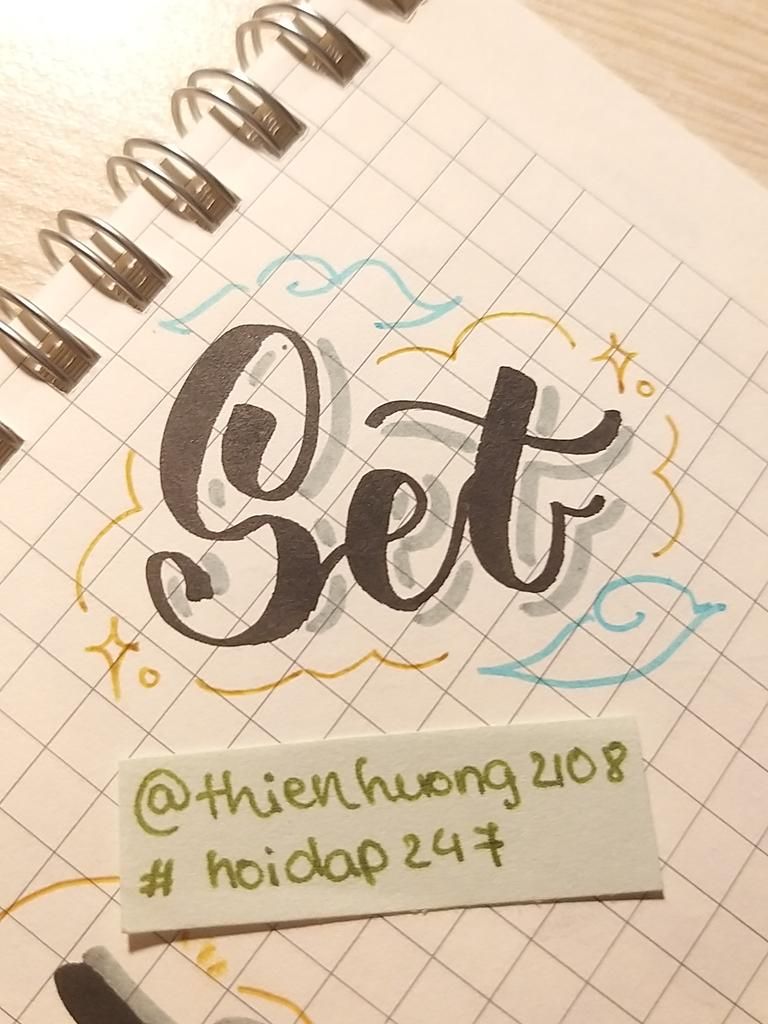 Set
@thienhuong2108
# hoidap247